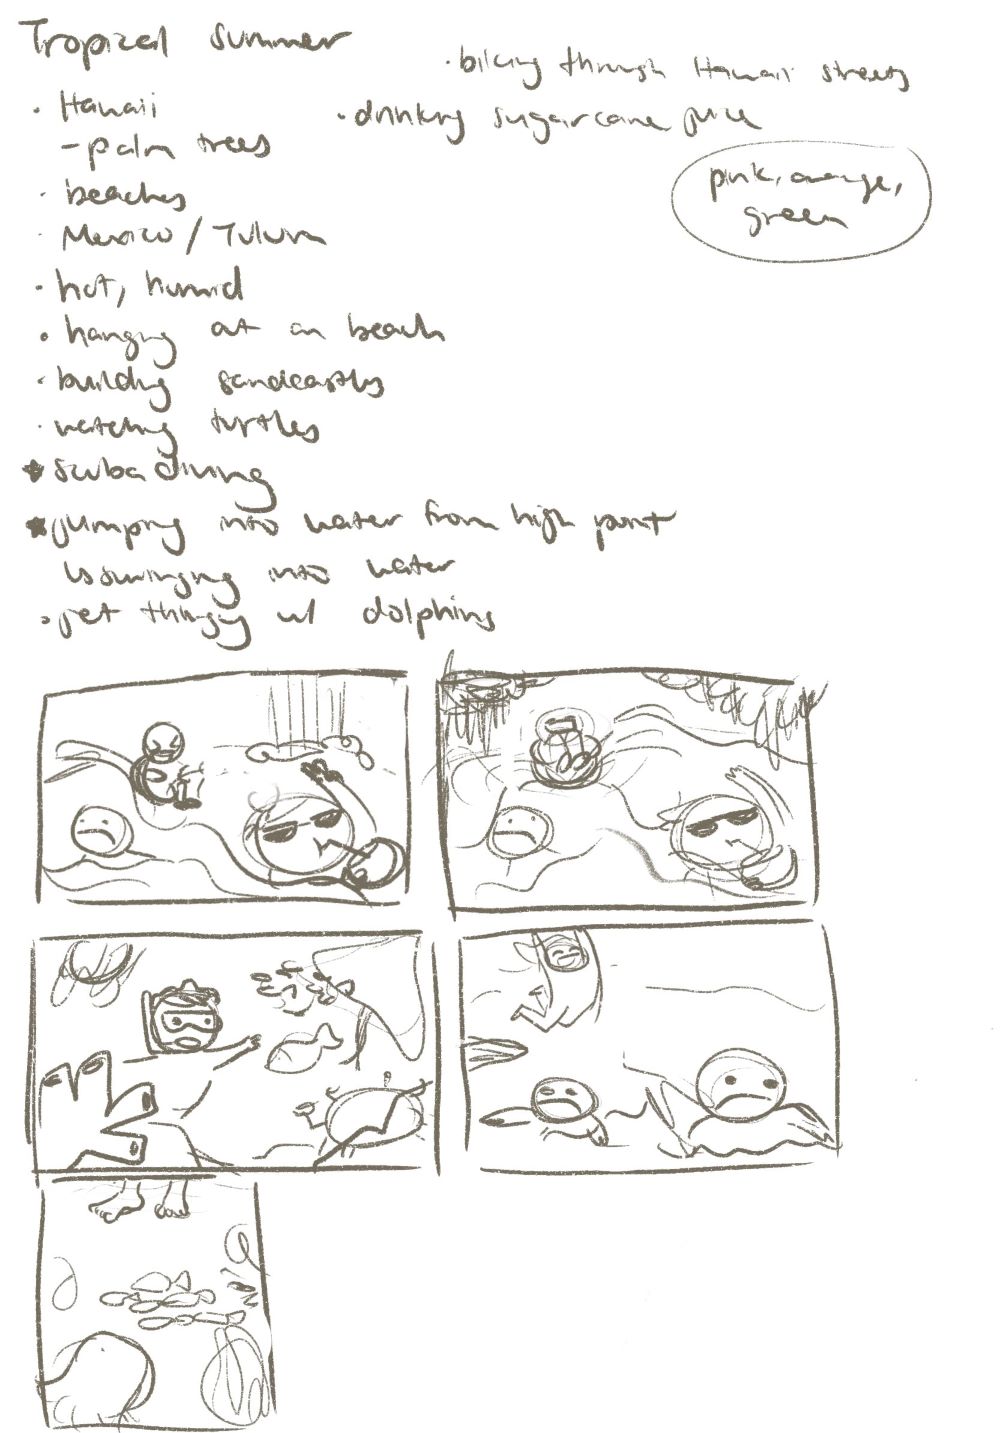 Tropical summer
· Hawaii
- palm trees
· beaches
· Mexico / Tulum
· hot, humid
· hanging at an beach
· building sandcastles
· watching turtles
★ scuba diving
★ jumping into water from high point
↳ swinging into water
· jet thingy w/ dolphins
· biking through Hawaii streets
· drinking sugarcane juice
pink, orange,
green